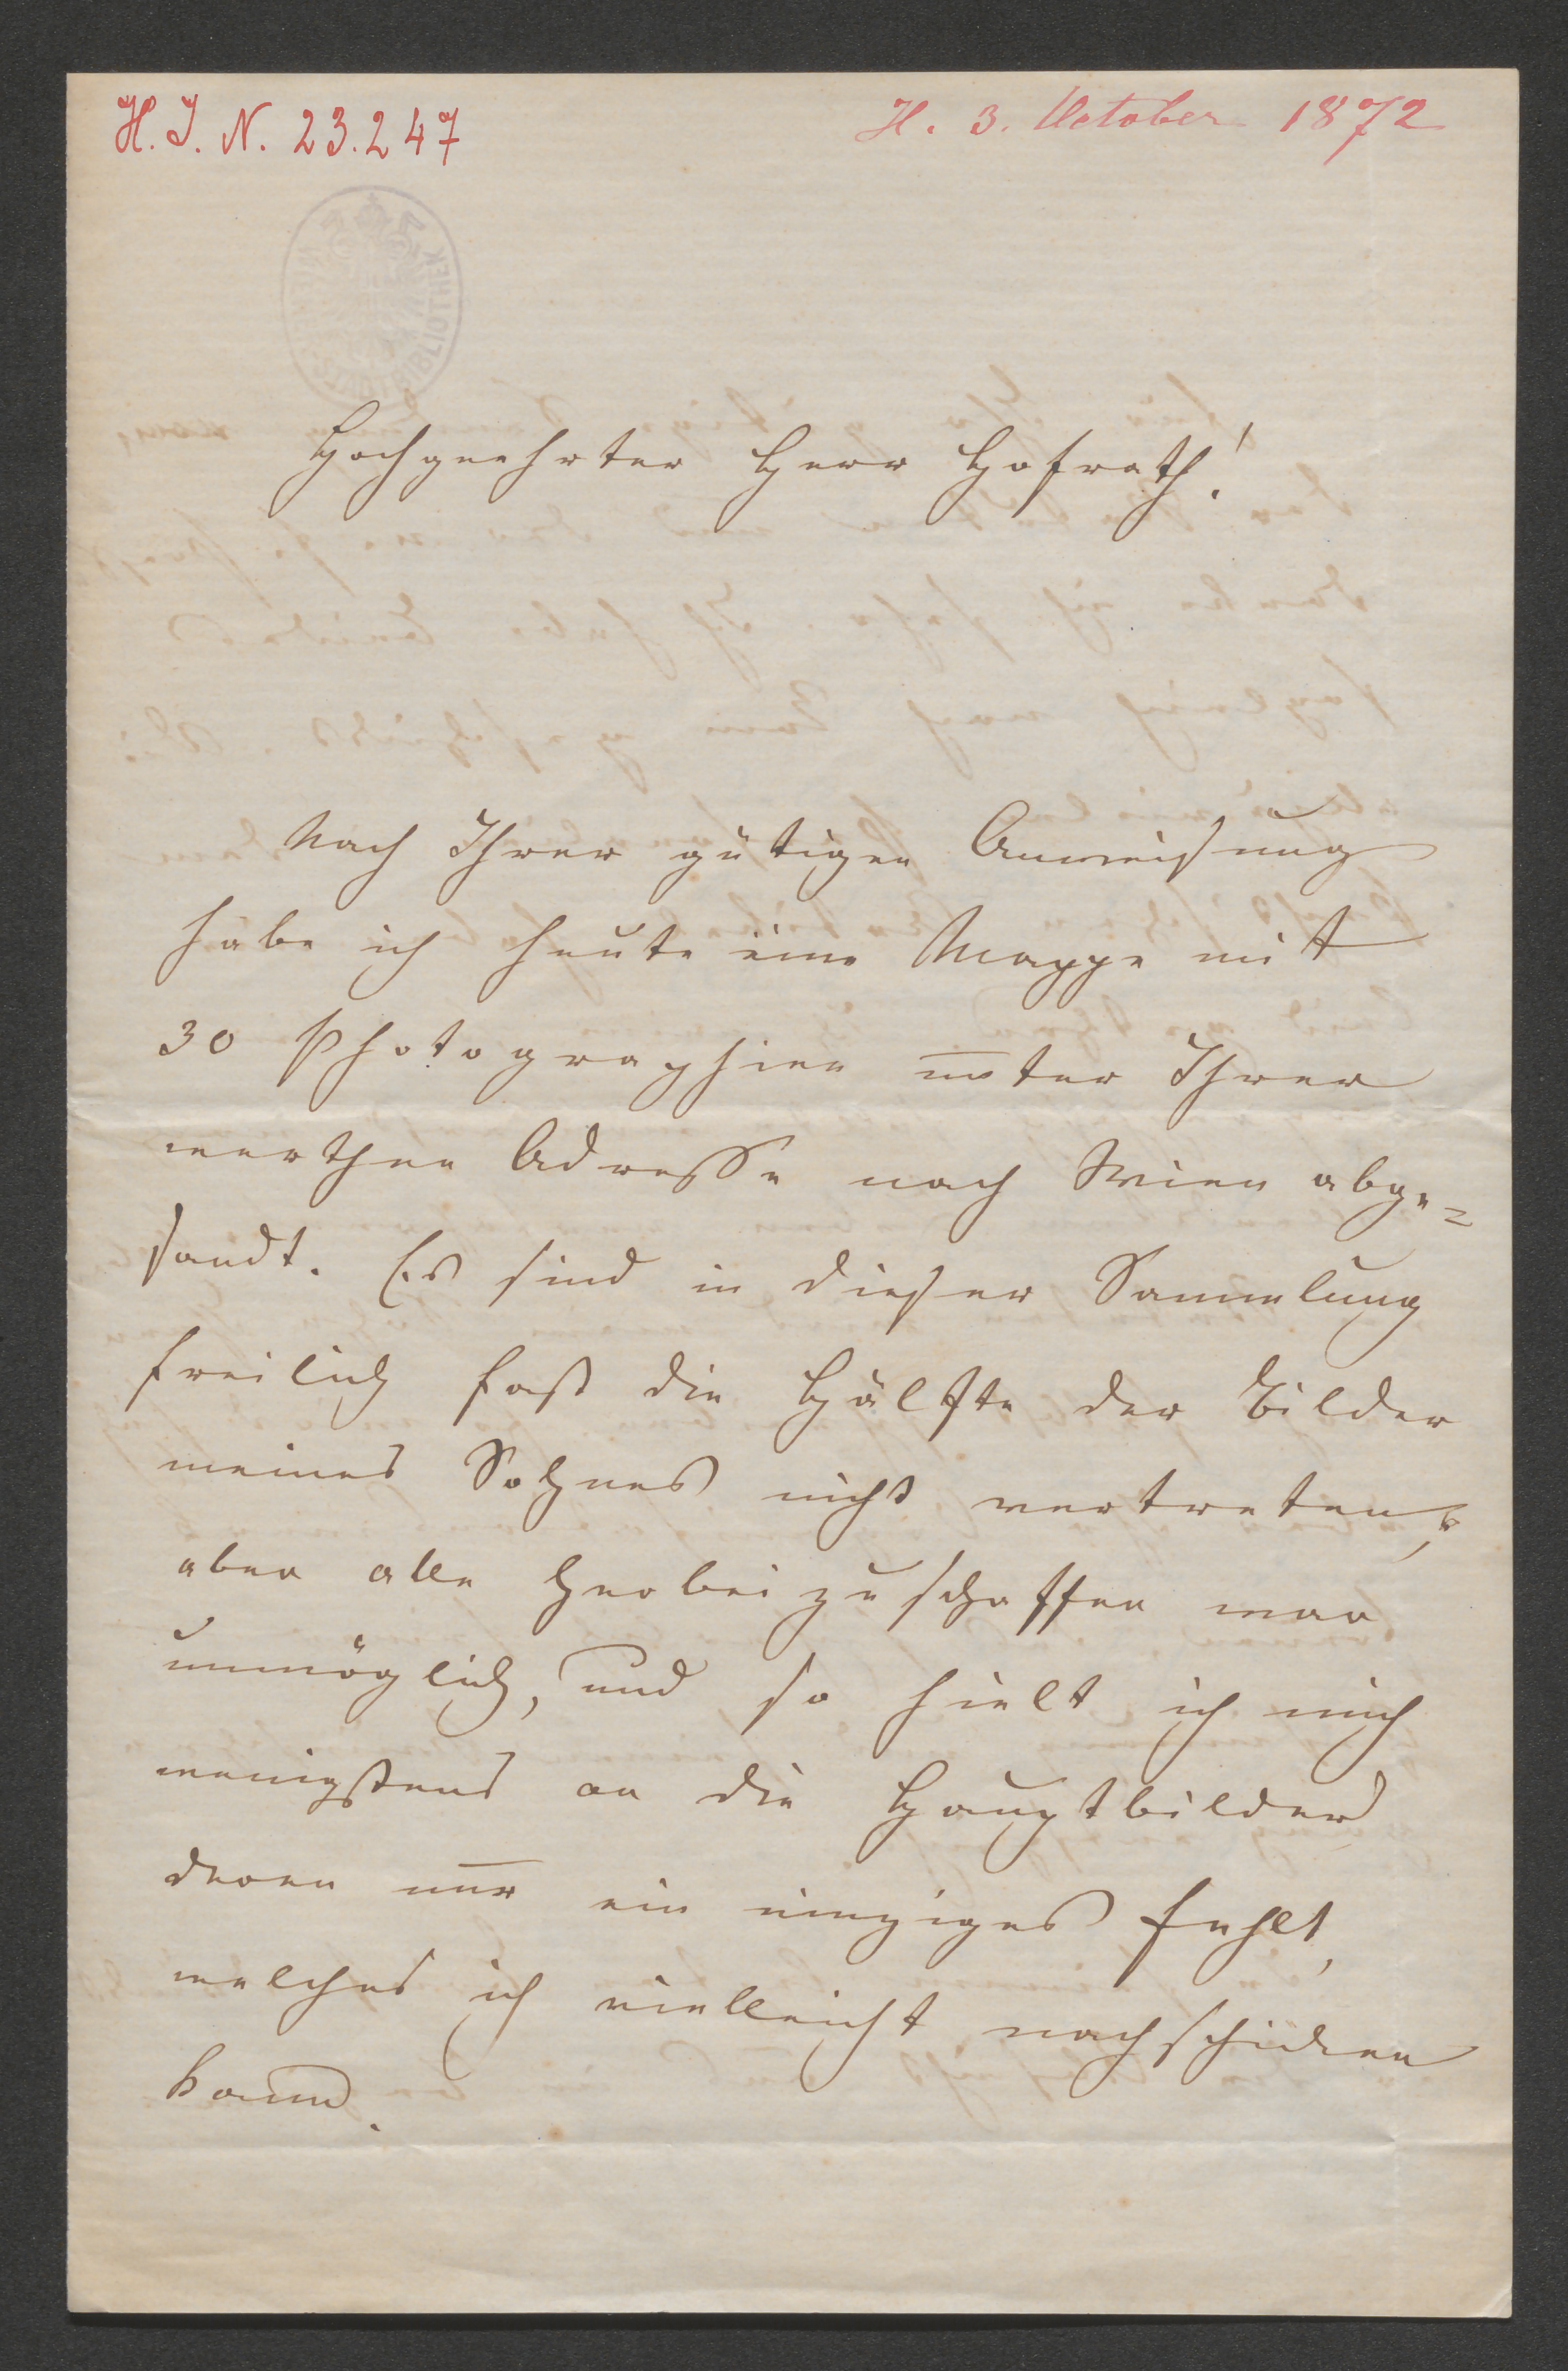 H. I. N. 23.247
H. 3. October 1872
STADTBIBLIOTHEK
Hochgeehrter Herr Hofrath!
Nach Ihrer gütigen Anweisung
habe ich heute eine Mappe mit
30 Photographien unter Ihrer
werthen Adresse nach Wien abge=
sandt. Es sind in dieser Sammlung
freilich fast die Hälfte der Bilder
meines Sohnes nicht vertreten,
aber alle herbeizuschaffen war
unmöglich, und so hielt ich mich
wenigstens an die Hauptbilder
deren nur ein einziges fehlt,
welches ich vielleicht nachschicken
kann.